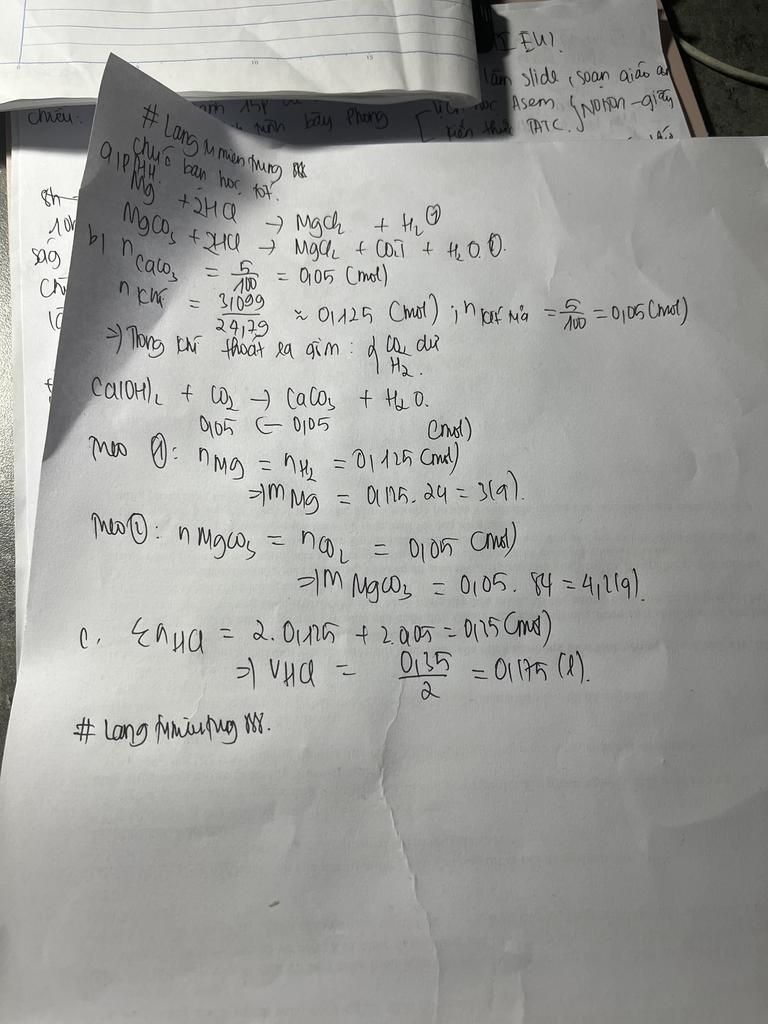 I EU1.
làm slide, soạn giáo án
Asem
NOKON - giấy
kiến thức TATC.
chiều:
15p
trình bày phong
8h
10h
sáng
# Lang nmientrung
chúc bạn học tốt.
a, PTHH.
Mg + 2HCl → MgCl2 + H2 ①
MgCO3 + 2HCl → MgCl2 + CO2↑ + H2O ②.
b) nCaCO3 = 5/100 = 0,05 (mol)
n khí = 3,099/24,79 ≈ 0,125 (mol) ; n kết tủa = 5/100 = 0,05 (mol)
⇒ Trong khí thoát ra gồm: { CO2 dư
H2.
Ca(OH)2 + CO2 → CaCO3 + H2O.
0,05 ← 0,05 (mol)
Theo ①: nMg = nH2 = 0,125 (mol)
⇒ mMg = 0,125. 24 = 3(g).
Theo ②: nMgCO3 = nCO2 = 0,05 (mol)
⇒ m MgCO3 = 0,05. 84 = 4,2(g).
c. ΣnHCl = 2. 0,125 + 2.0,05 = 0,35 (mol)
⇒ VHCl = 0,35/2 = 0,175 (l).